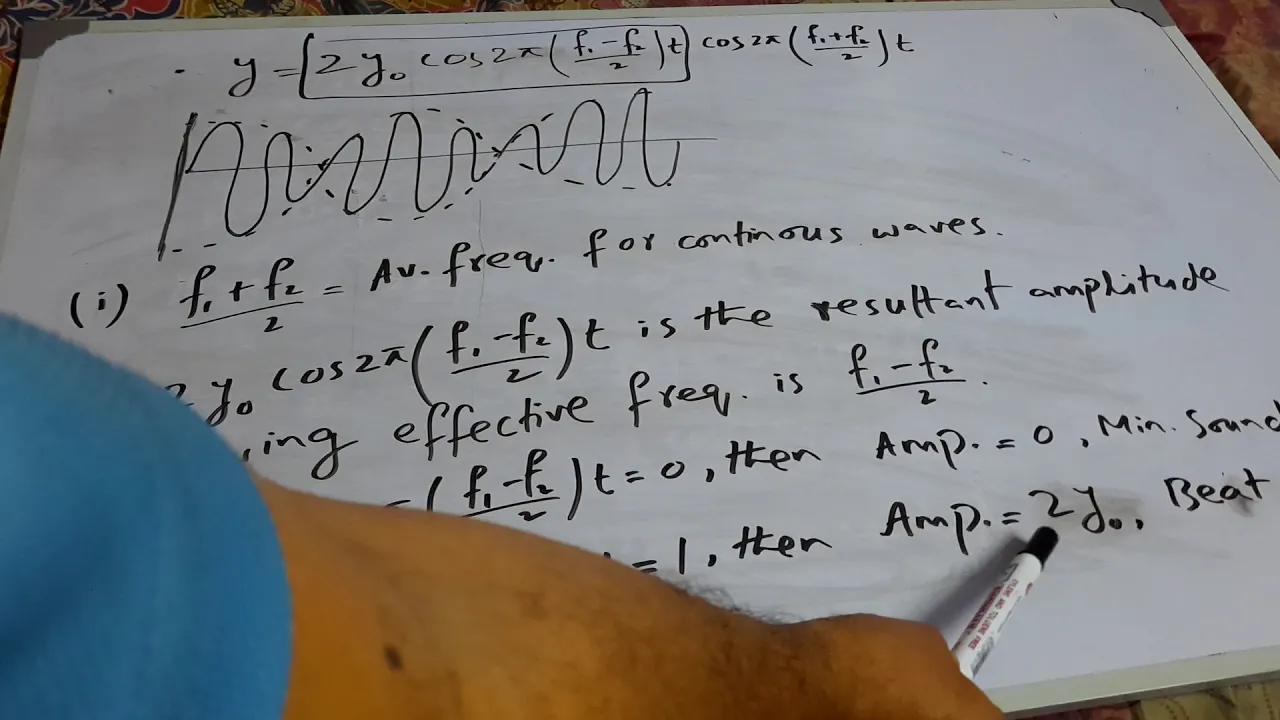 y = [2y₀ cos2π(f₁-f₂/2)t] cos2π(f₁+f₂/2)t
(i) f₁+f₂/2 = Av. freq. for continous waves.
y₀ cos2π(f₁-f₂/2)t is the resultant amplitude
effective freq. is f₁-f₂/2.
(f₁-f₂/2)t=0, then Amp.=0, Min. Sound
=1, then Amp.=2y₀, Beat